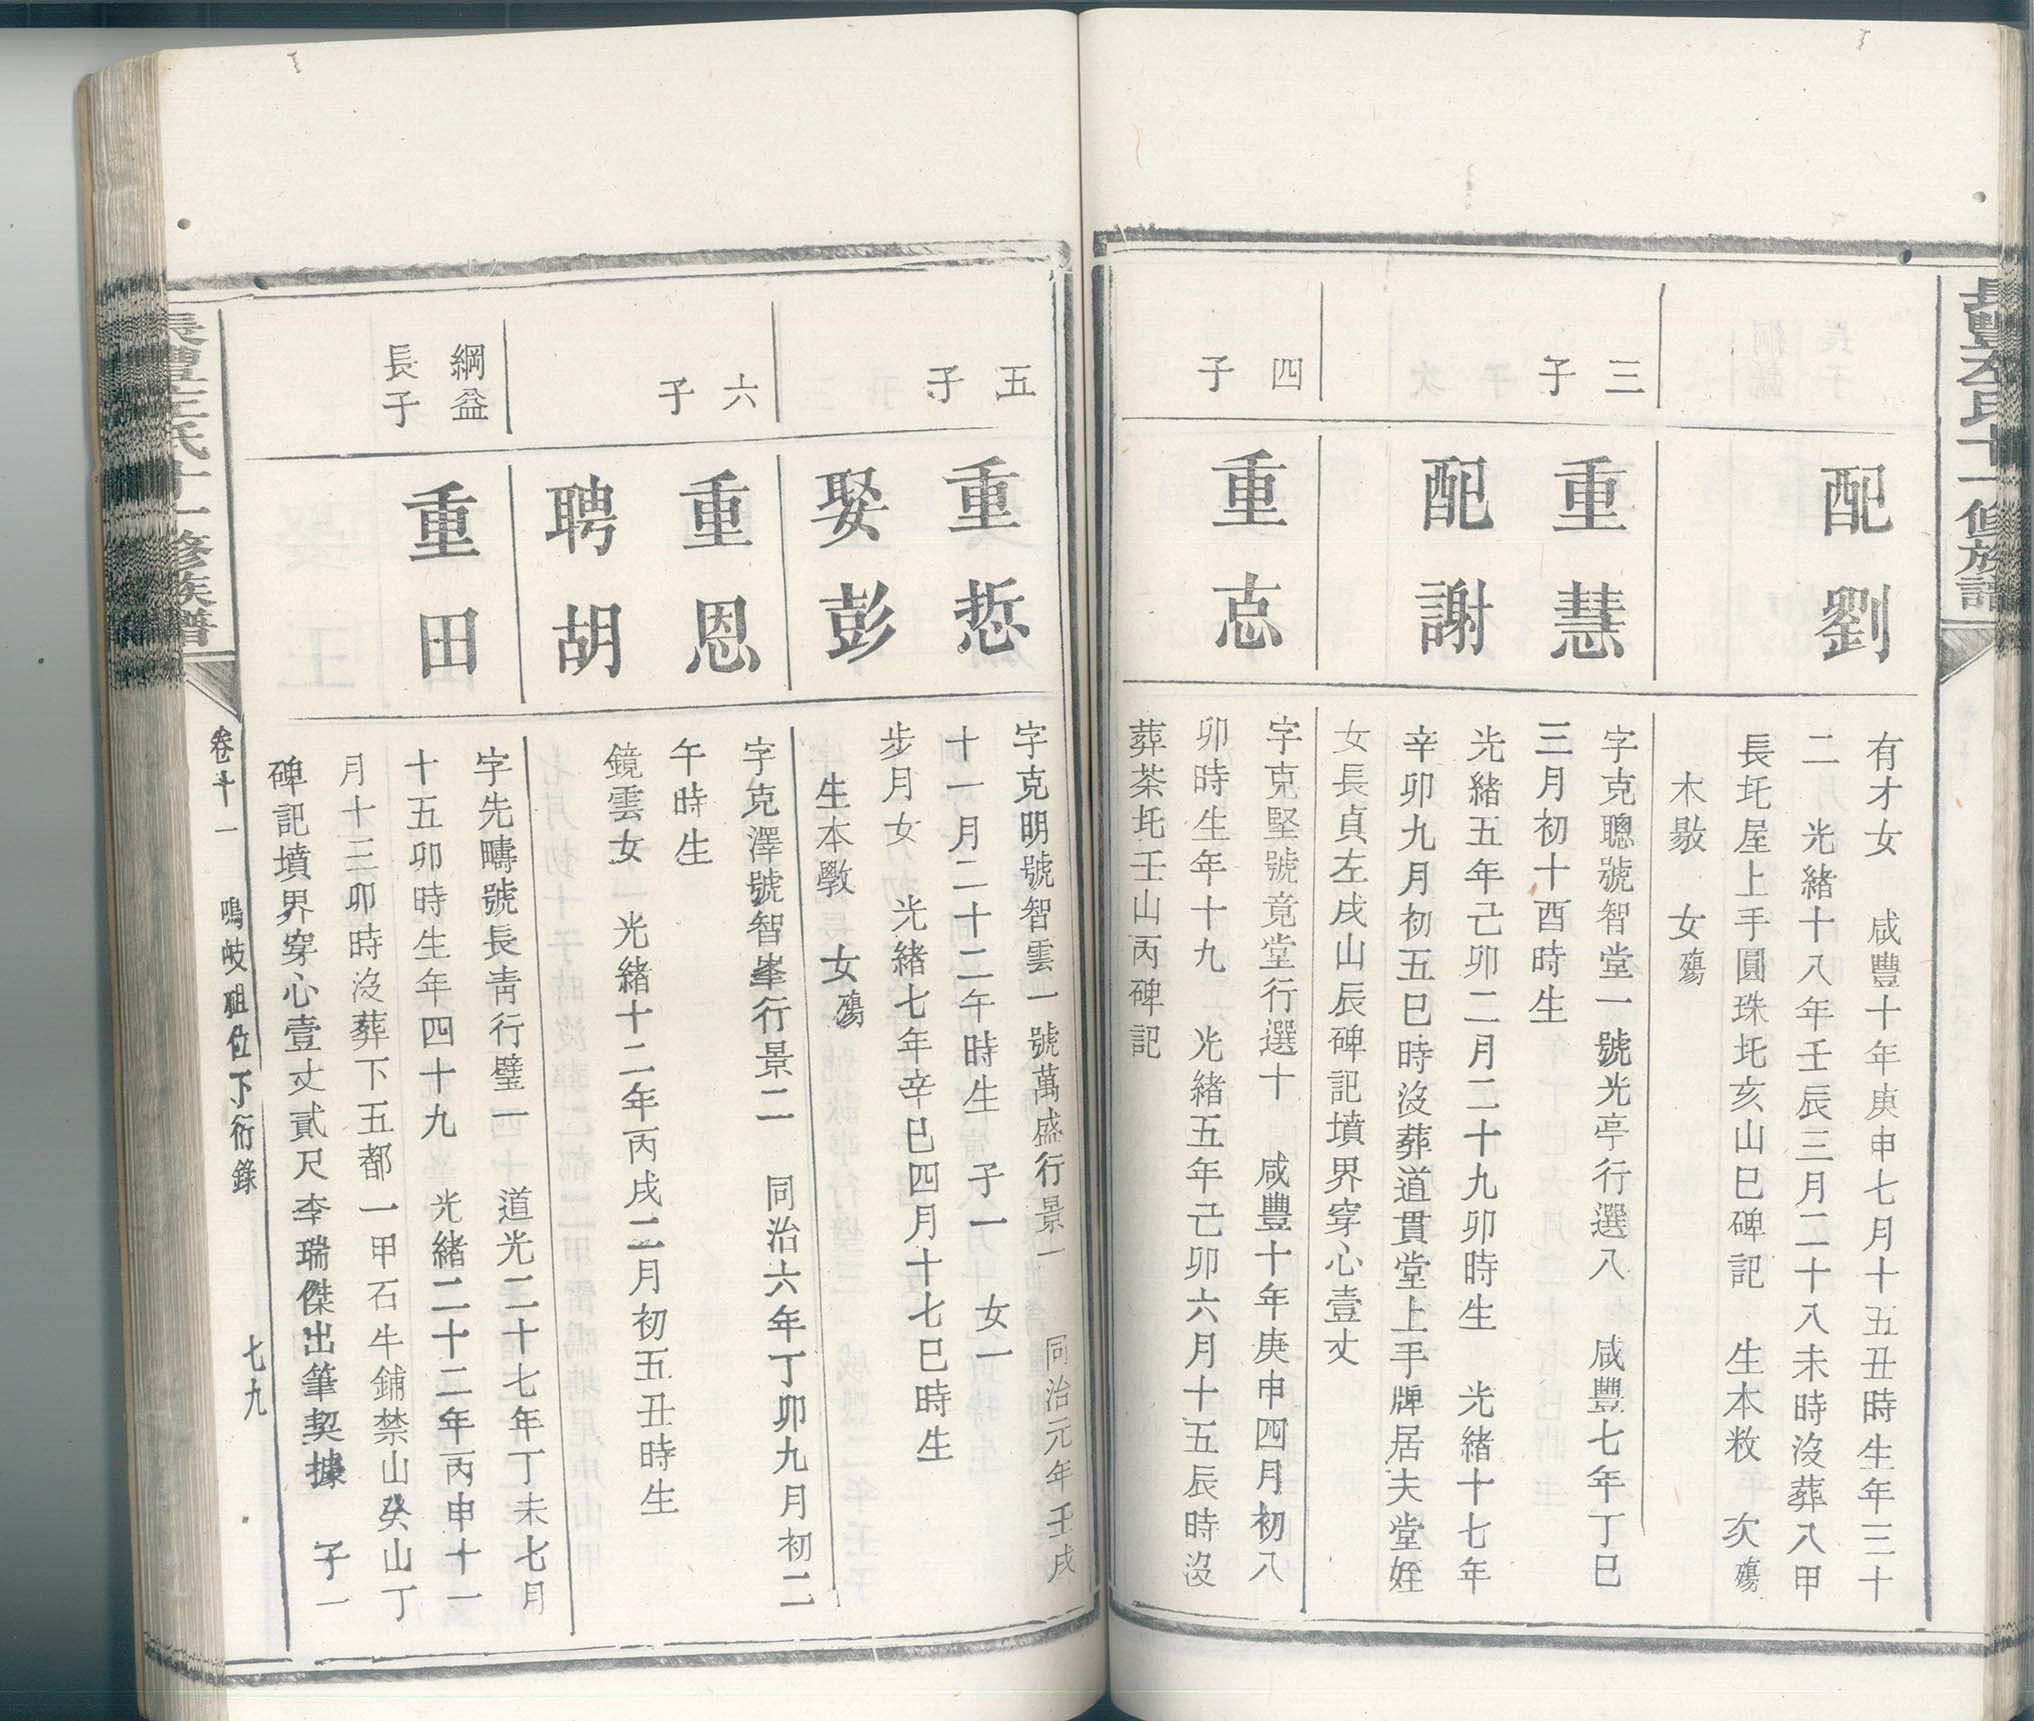 配劉
有才女 咸豐十年庚申七月十五丑時生年三十
二 光緒十八年壬辰三月二十八未時沒葬八甲
長圫屋上手圓珠圫亥山巳碑記 生本敉 次殤
女殤
三子
重慧
字克聰號智堂一號光亭行選八 咸豐七年丁巳
三月初十酉時生
配謝
光緒五年己卯二月二十九卯時生 光緒十七年
辛卯九月初五巳時沒葬道貫堂上手牌居夫堂姪
女長貞左戌山辰碑記墳界穿心壹丈
四子
重志
字克堅號竟堂行選十 咸豐十年庚申四月初八
卯時生年十九 光緒五年己卯六月十五辰時沒
葬茶圫壬山丙碑記
五子
重悊
字克明號智雲一號萬盛行景一 同治元年壬戌
十一月二十二午時生 子一 女一
娶彭
步月女 光緒七年辛巳四月十七巳時生
生本斆 女殤
六子
重恩
字克澤號智峯行景二 同治六年丁卯九月初二
午時生
聘胡
鏡雲女 光緒十二年丙戌二月初五丑時生
綱益
長子
重田
字先疇號長青行璧一 道光二十七年丁未七月
十五卯時生年四十九 光緒二十二年丙申十一
月十三卯時沒葬下五都一甲石牛鋪禁山癸山丁
碑記墳界穿心壹丈貳尺李瑞傑出筆契據 子一
十一修族譜
卷十一 鳴岐祖位下衍錄 七九